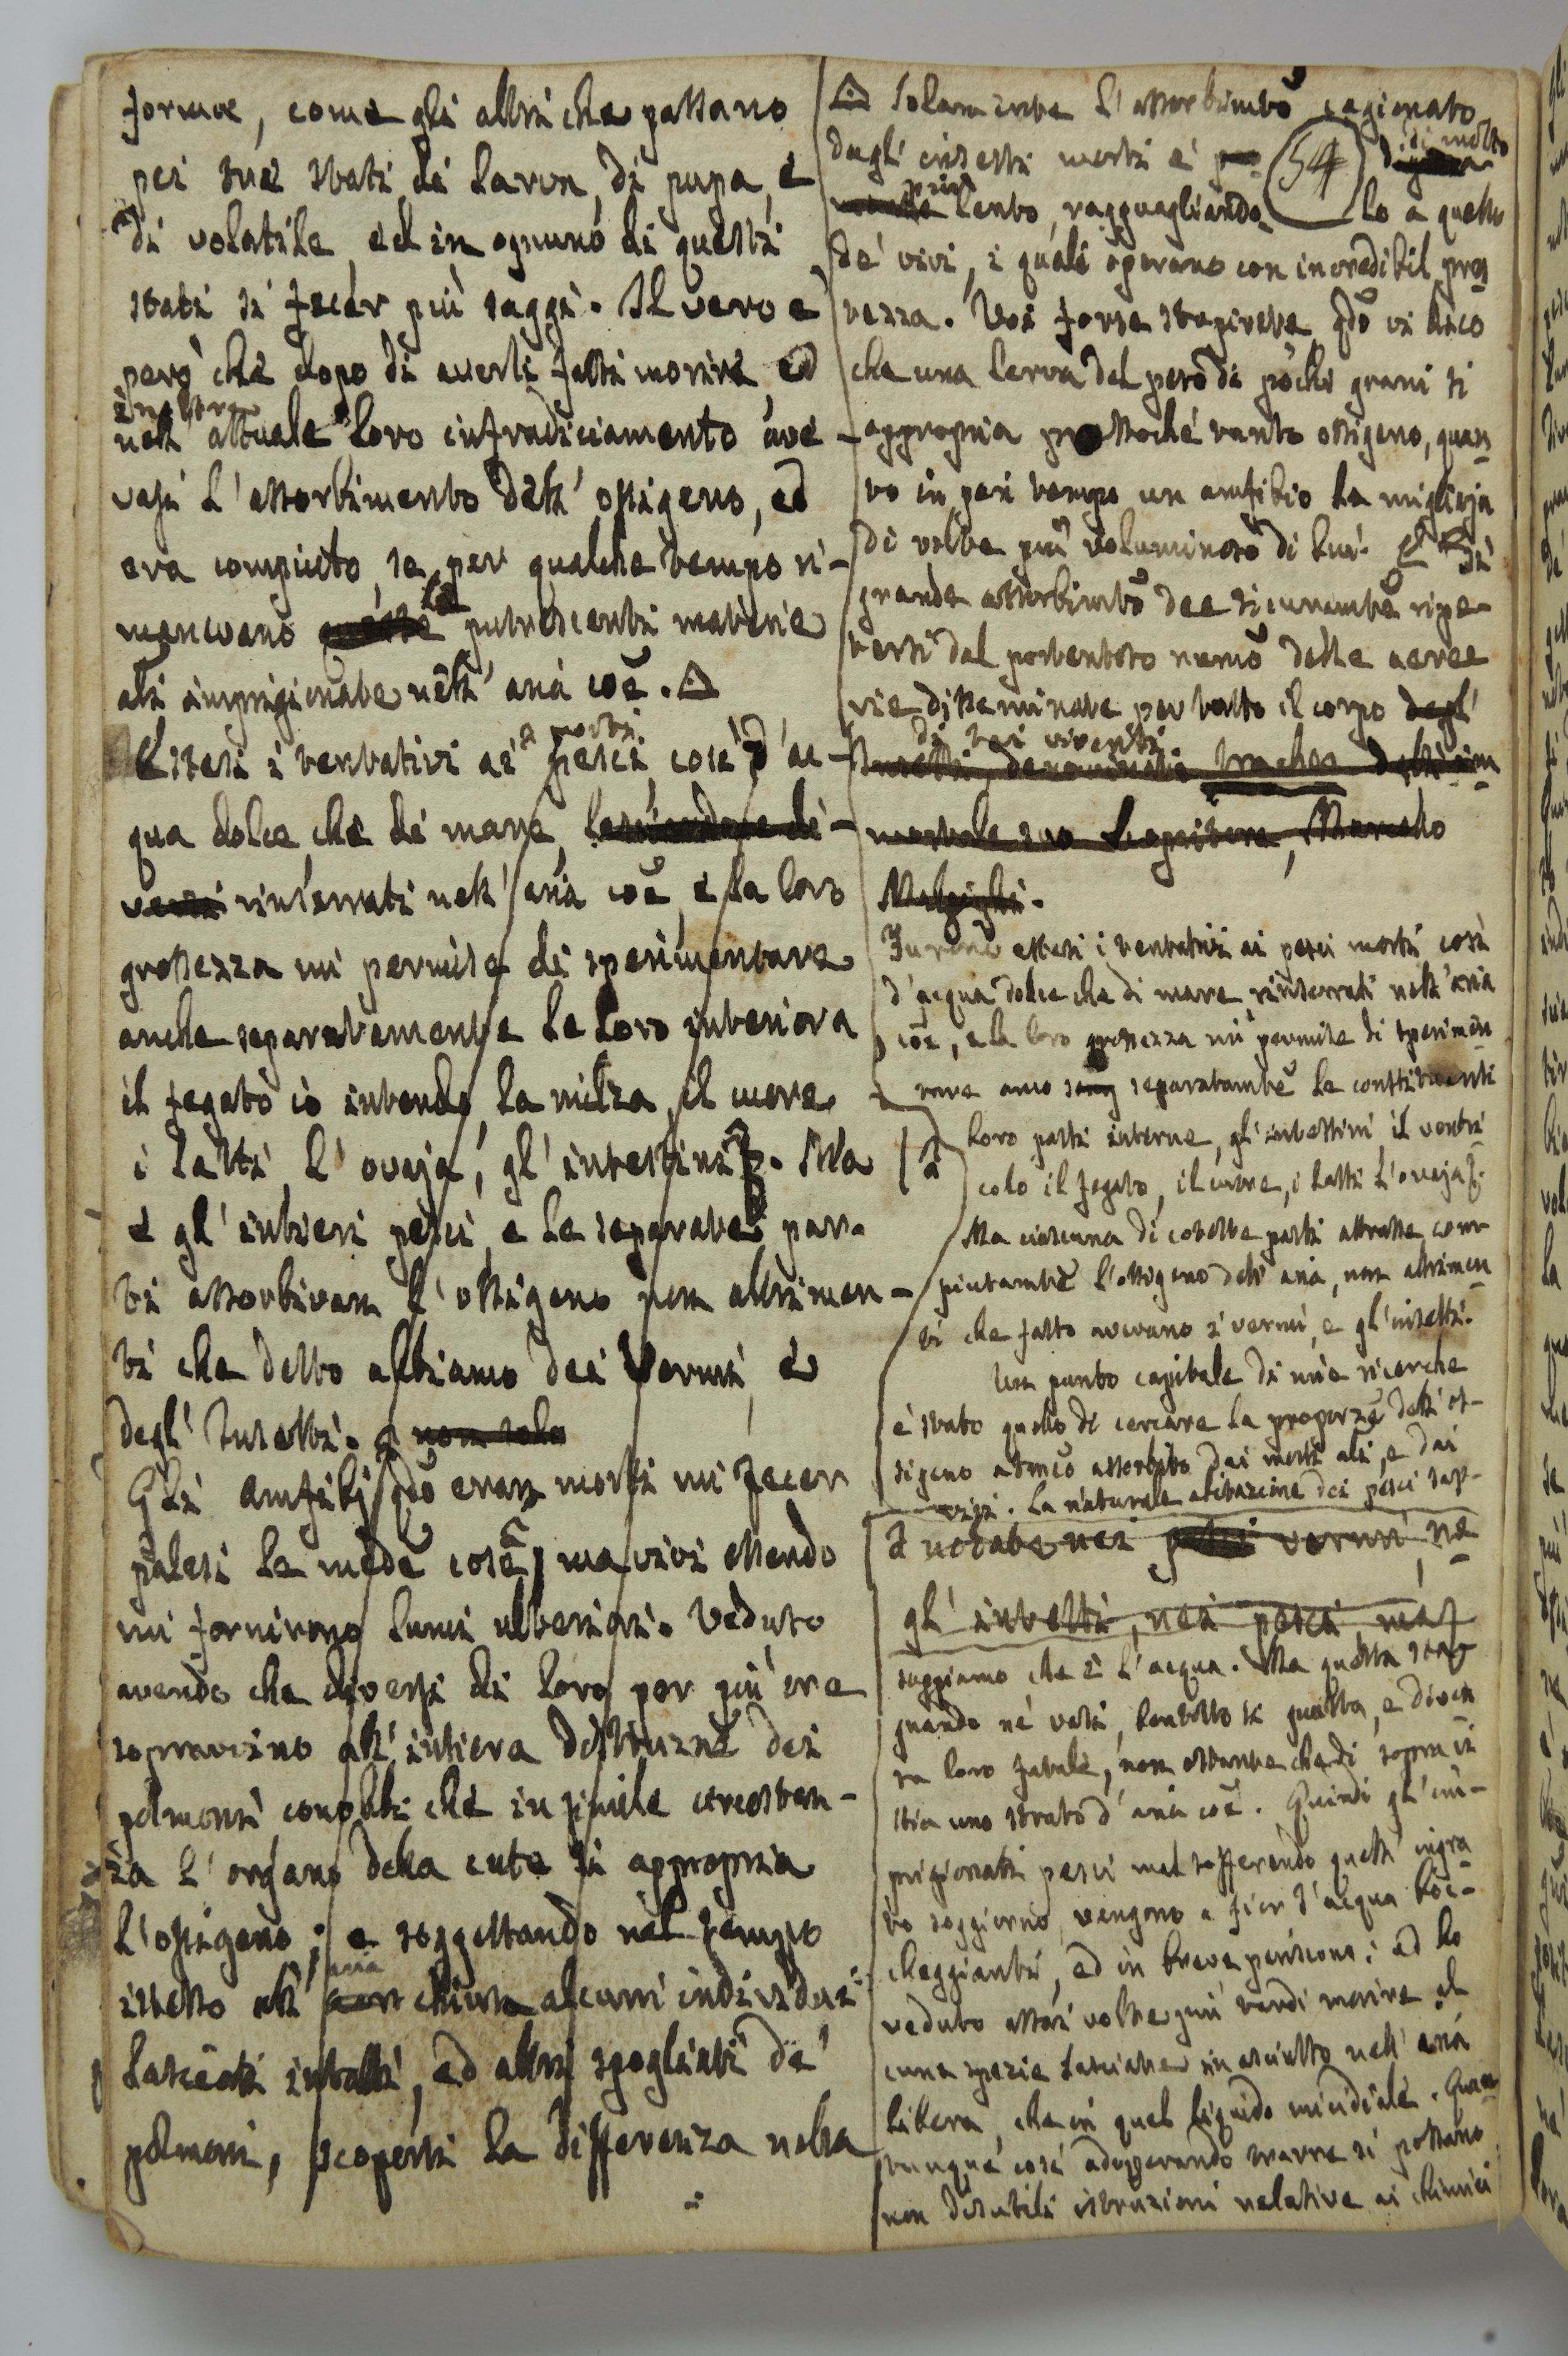 forme, come gli altri che passano
pei tre stati di larva, di pupa, e
di volatile, ed in ognuno di questi
stati si fecer più saggi. Il vero è
però che dopo di averli fatti morire, ed
inoltre
nell' attuale loro infradiciamento ave-
vasi l'assorbimento dell' ossigeno, ed
era compiuto, se per qualche tempo ri-
manevano queste tal putrescenti materie
abi imprigionate nell' aria coē. △
Estesi i tentativi ai pesci morti, così d'ac-
qua dolce, che di mare, lasciandone di-
versi rinserrati nell' aria coē, e la loro
grossezza mi permise di sperimentare
anche separatamente le loro interiora
il fegato io intendo, la milza, il cuore
i latti, l' ovaja, gl' intestini &. Ma
e gl' intieri pesci, e le separate par-
ti assorbivan l' ossigeno non altrimen-
ti che detto abbiamo dei Vermi, e
degl' Insetti. non solo
Gli Amfibj qdō eran morti mi fecer
palesi le medē cose, ma vivi essendo
mi fornirono lumi ulteriori. Veduto
avendo che diversi di loro per più ore
sopravvivno all' intiera distruznē dei
polmoni conobbi che in simile circostan-
za l' organo della cute si appropria
l'ossigeno; e soggettando nel tempo
aria
istesso all' aer chiusa alcuni individui
lasciati intatti, ed altri spogliati de'
polmoni, scopersi la differenza nella
△ Solamente l'assorbimtō cagionato
dagl' insetti morti è 54 di molto
più lento, ragguagliando lo a quello
de' vivi, i quali operano con incredibil pres
tezza. Voi forse stupirete qdō vi dico
che una larva del peso di pochi grani si
appropria pressochè tanto ossigeno, quan
to in pari tempo un amfibio le migliaja
di volte più voluminoso di lui. E sì
grande assorbimtō dee sicuramtē ripe-
tersi dal portentoso numō delle aeree
vie disseminate per tutto il corpo degl'
di tai viventi
Insetti, denominate trachee dall' im
mortale suo Scopritore, Marcello
Malpighi.
Furono estesi i tentativi ai pesci morti così
d'acqua dolce che di mare rinserrati nell' aria
coē, e la loro grossezza mi permise di sperimen
tare anco separatamtē le constituenti
loro parti interne, gl' intestini, il ventri
colo il fegato, il cuore, i latti l'ovaja &.
Ma ciascuna di cotette parti attrasse com-
piutamtē l'ossigeno dell' aria, non altrimen
ti che fatto avevano i vermi, e gl' insetti.
Un punto capitale di mie ricerche
è stato quello di cercare la proporznē dell' os-
sigeno atmcō assorbito dai morti abi, e dai
vivi. La naturale abitazione dei pesci sap-
a notate nei pesci vermi, ne
gl' insetti, nei pesci, ne
sappiamo che è l'acqua. Ma questa stag
nando ne' vasi, bentosto si guasta, e diven
ta loro fatale, non ostante che di sopra vi
stia uno strato d'aria coē. Quindi gl' im-
prigionati pesci mal sofferendo quell' ingra
to soggiorno, vengono a fior d'acqua boc-
cheggianti, ed in breve periscono: ed ho
veduto assai volte più tardi morire al
cune spezie lasciate in asciutto nell' aria
libera, che in quel liquido micidiale. Quan
tunque così adoperando trarre si possano
non disutili istruzioni relative ai chimici